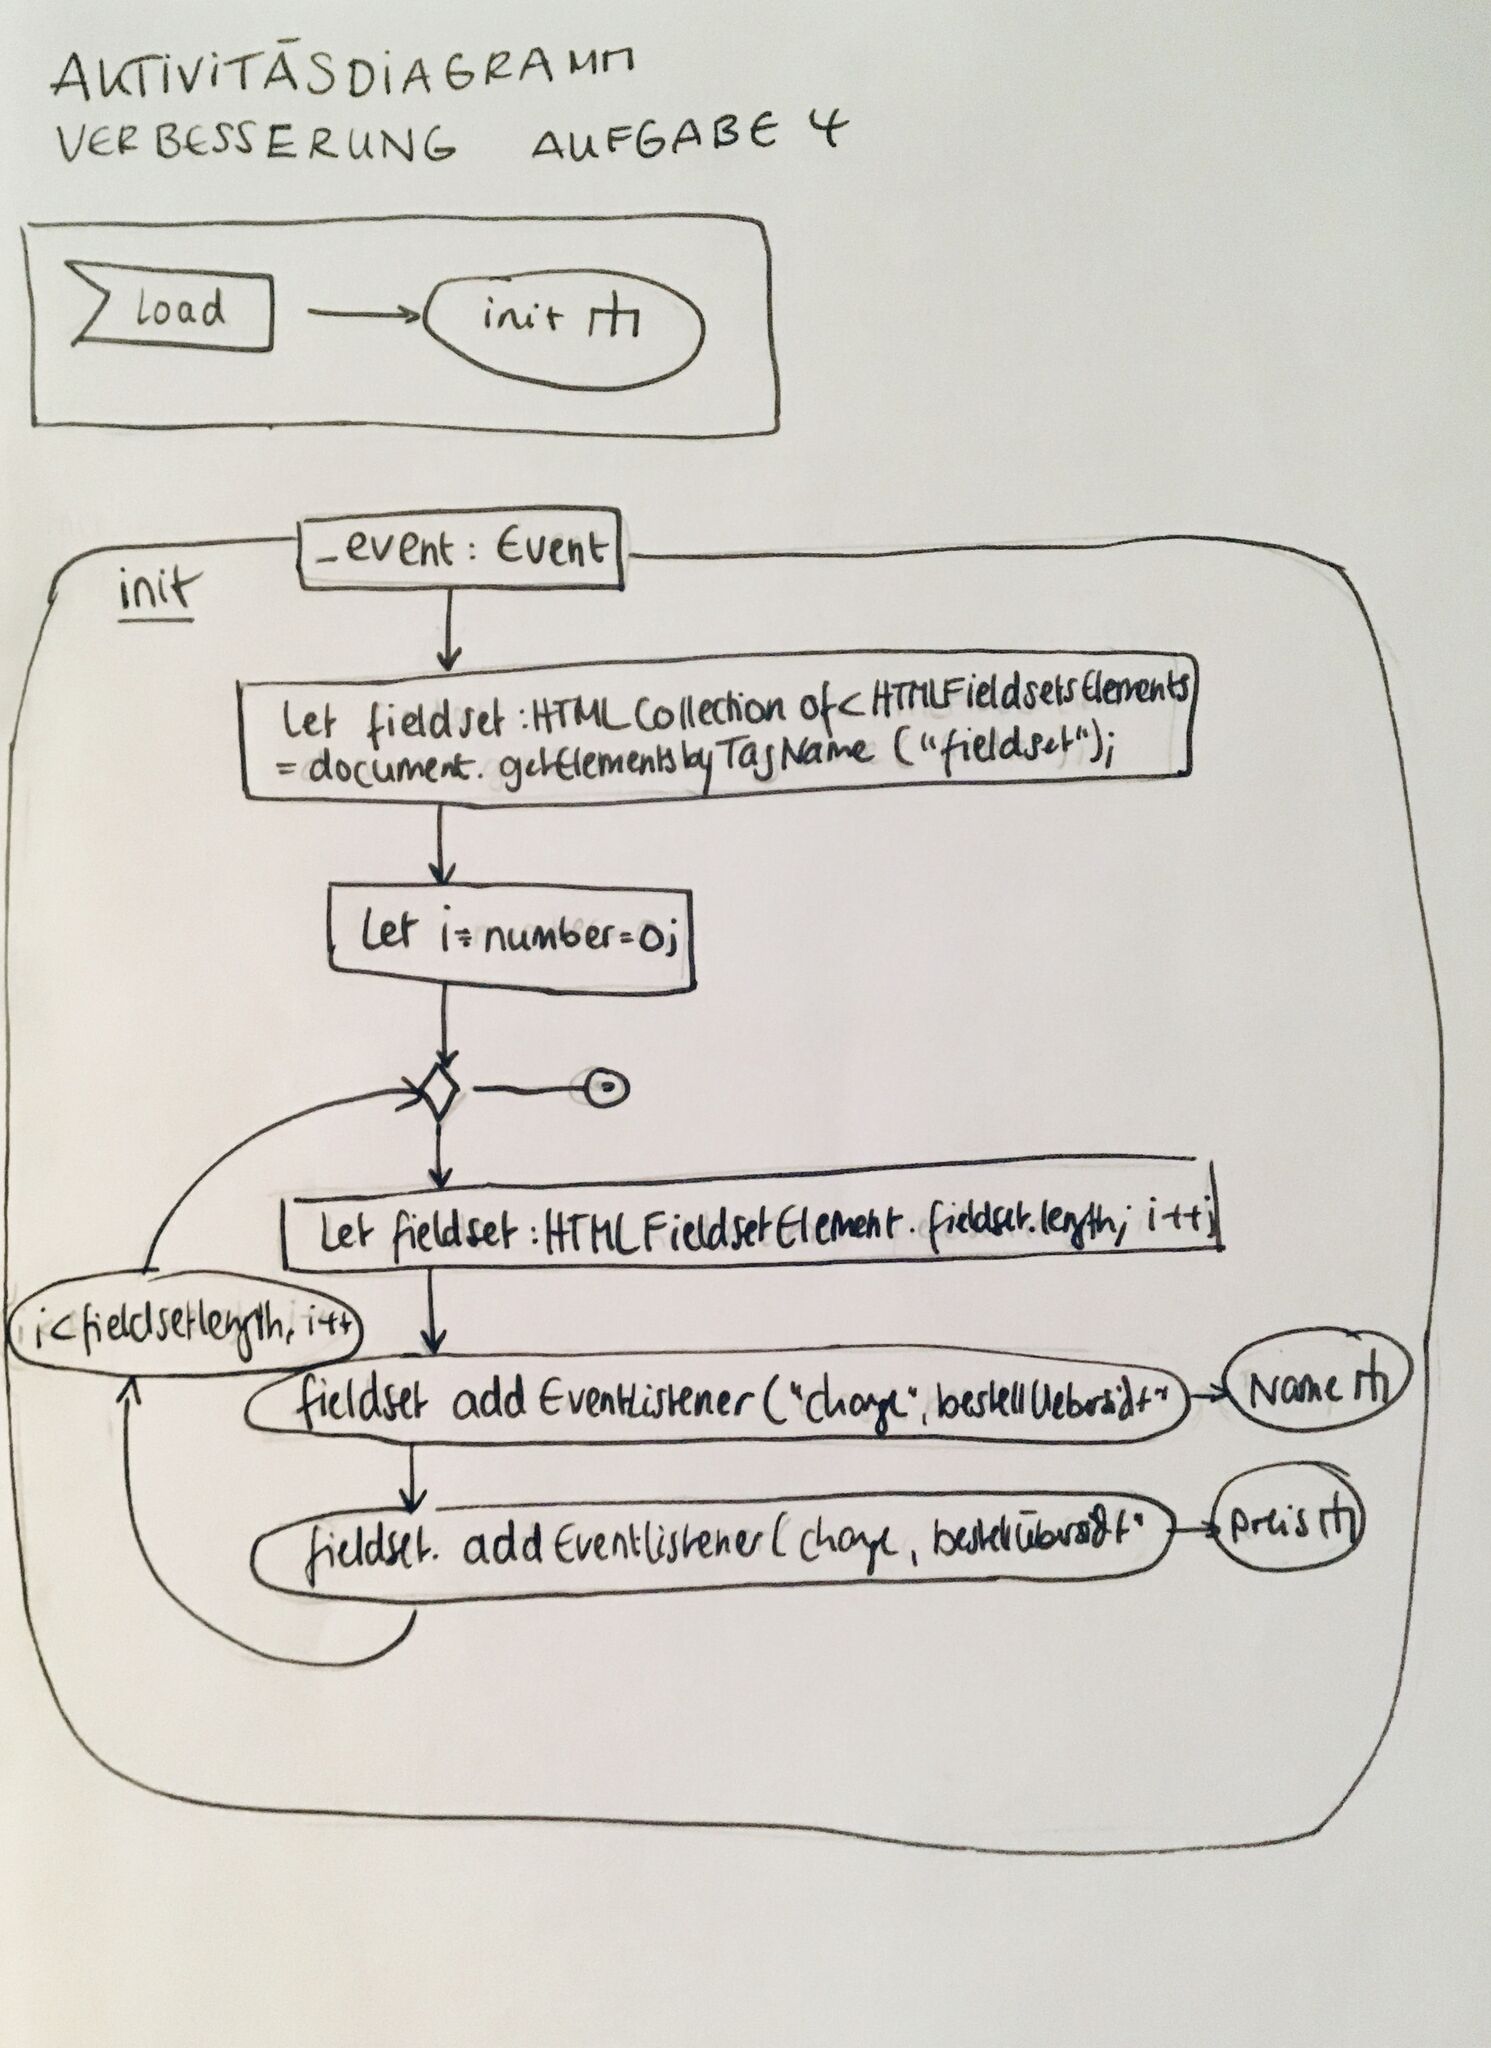 AKTIVITÄSDIAGRAMM
VERBESSERUNG AUFGABE 4
load
init
_event: Event
init
Let fieldset:HTMLCollection of<HTMLFieldsetsElements
=document.getElementsbyTagName ("fieldset");
Let i=number=0;
Let fieldset:HTMLFieldsetElement.fieldset.length; i++;
i<fieldsetlength, i++
fieldset addEventListener("change", bestellUebersicht"
Name
fieldset. addEventListener(change, bestellübersicht"
Preis